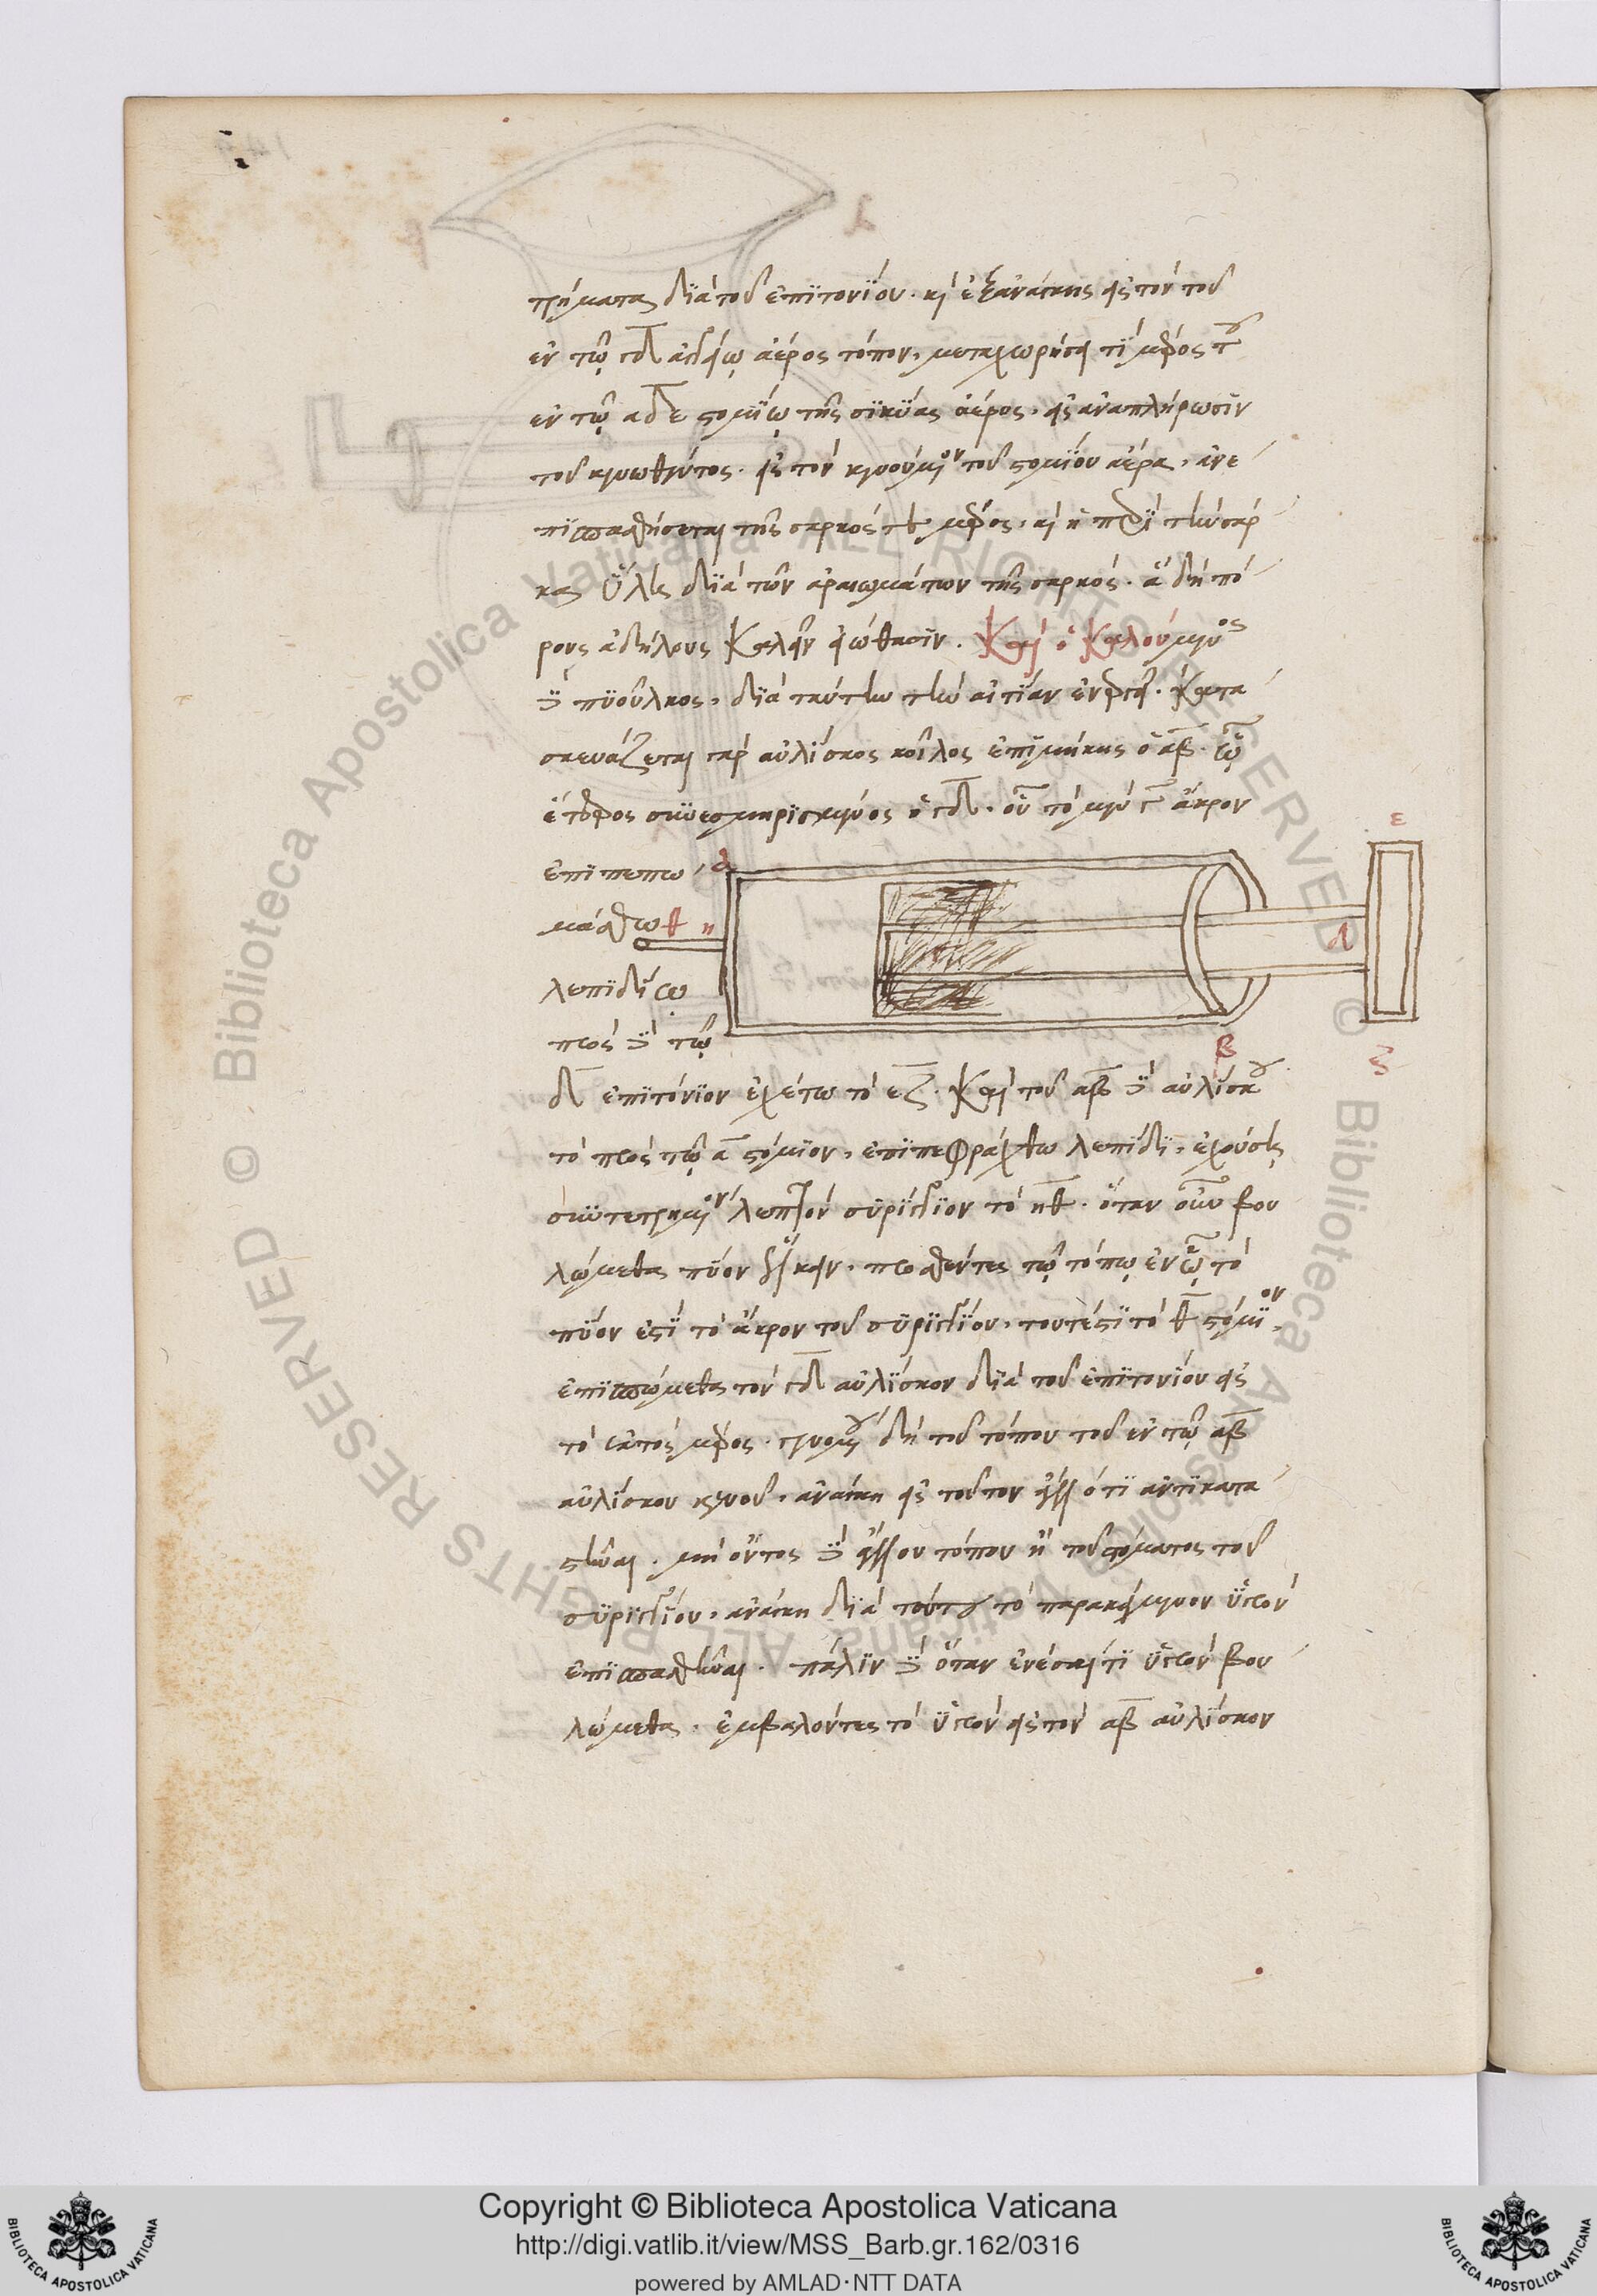 τρήματα διὰ τοῦ ἐπιτονίου. καὶ ἐξανάγκης εἰς τὸν τοῦ
ἐν τῷ γδ ἀγγείῳ ἀέρος τόπον, μεταχωρήσει τὶ μέρος τοῦ
ἐν τῷ αδε στομίῳ τῆς σικύας ἀέρος, εἰς ἀναπλήρωσιν
τοῦ κενωθέντος. εἰς τὸν κενούμενον τοῦ στομίου ἀέρα, ἀνε
πισπασθήσεται τῆς σαρκός τε μέρος, καὶ ἡ περὶ τὴν σάρ
κα ὕλη διὰ τῶν ἀραιωμάτων τῆς σαρκός. ἃ δὴ πό
ρους ἀδήλους καλεῖν εἰώθασιν. Καὶ ὁ καλούμενος
δὲ πυοῦλκος, διὰ ταύτην τὴν αἰτίαν ἐνεργεῖ. κατα
σκευάζεται γὰρ αὐλίσκος κοῖλος ἐπιμήκης ὁ αβ. ᾧ
ἕτερος συνεσμηρισμένος ὁ γδ. οὗ τὸ μὲν γ ἄκρον
ἐπιπεπω
μάσθω
λεπιδίῳ
πρὸς δὲ τῷ
δ ἐπιτόνιον ἐχέτω τὸ εζ. Καὶ τοῦ αβ δὲ αὐλίσκου
τὸ πρὸς τῷ α στόμιον, ἐπιπεφράχθω λεπίδι, ἐχούσης
συντετρημένον λεπτὸν συρίγγιον τὸ ηθ. ὅταν οὖν βου
λώμεθα πύον ἕλκειν, προσθέντες τῷ τόπῳ ἐν ᾧ τὸ
πύον ἐστὶ τὸ ἄκρον τοῦ συριγγίου, τουτέστι τὸ θ στόμιον,
ἐπισπώμεθα τὸν γδ αὐλίσκον διὰ τοῦ ἐπιτονίου εἰς
τὸ ἐκτὸς μέρος. γενομένου δὴ τοῦ τόπου τοῦ ἐν τῷ αβ
αὐλίσκου κενοῦ, ἀνάγκη εἰς τοῦτον ἄλλο τι ἀντικατα
στῆναι. μὴ ὄντος δὲ ἄλλου τόπου ἢ τοῦ στόματος τοῦ
συριγγίου, ἀνάγκη διὰ τούτου τὸ παρακείμενον ὑγρὸν
ἐπισπασθῆναι. πάλιν δὲ ὅταν ἐνέσαι τι ὑγρὸν βου
λώμεθα. ἐμβαλόντες τὸ ὑγρὸν εἰς τὸν αβ αὐλίσκον
α
θ η
ε
δ
β
ζ
Copyright © Biblioteca Apostolica Vaticana
http://digi.vatlib.it/view/MSS_Barb.gr.162/0316
powered by AMLAD·NTT DATA
BIBLIOTECA APOSTOLICA VATICANA
BIBLIOTECA APOSTOLICA VATICANA
© Biblioteca Apostolica Vaticana ALL RIGHTS RESERVED © Biblioteca Apostolica Vaticana ALL RIGHTS RESERVED